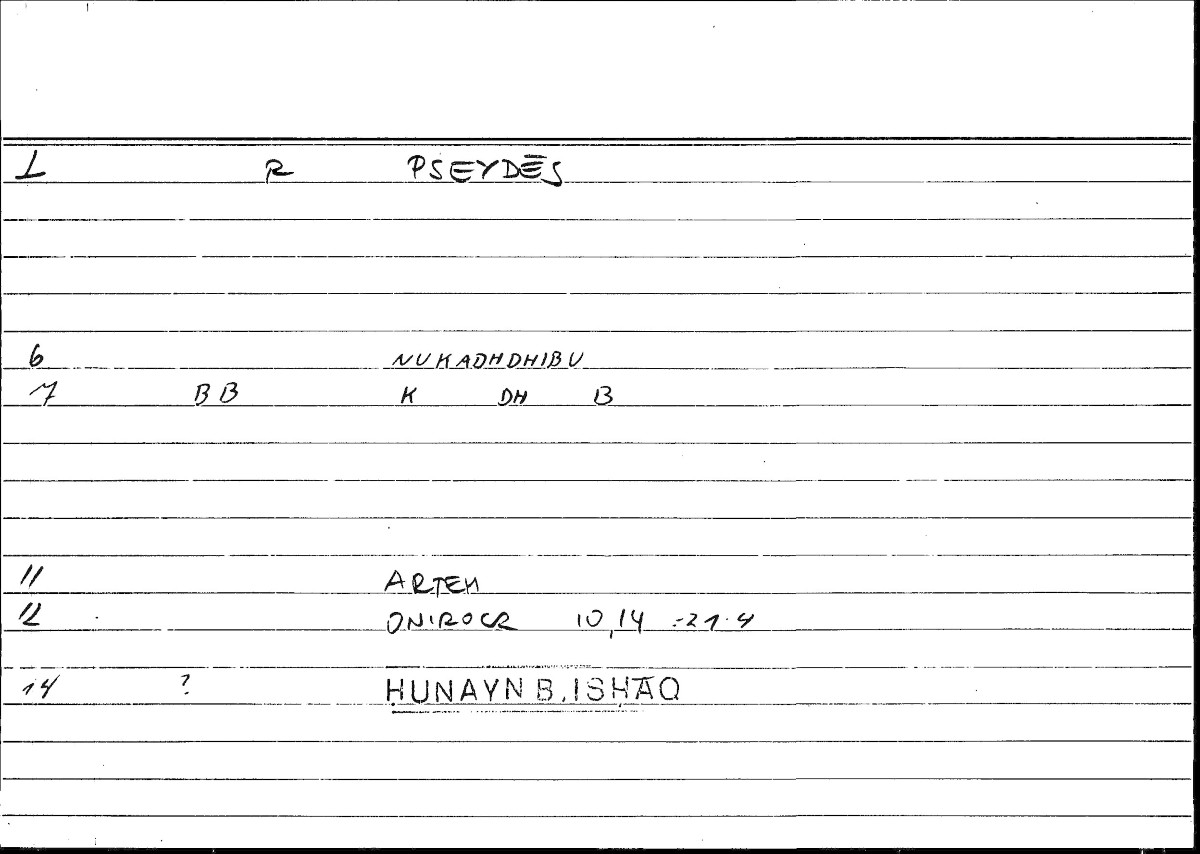 1 R PSEYDĒS
6 NUKADHDHIBU
7 BB K DH B
11 ARTEM
12 ONIROCR 10,14 = 21.4
14 ? ḤUNAYN B. ISḤĀQ